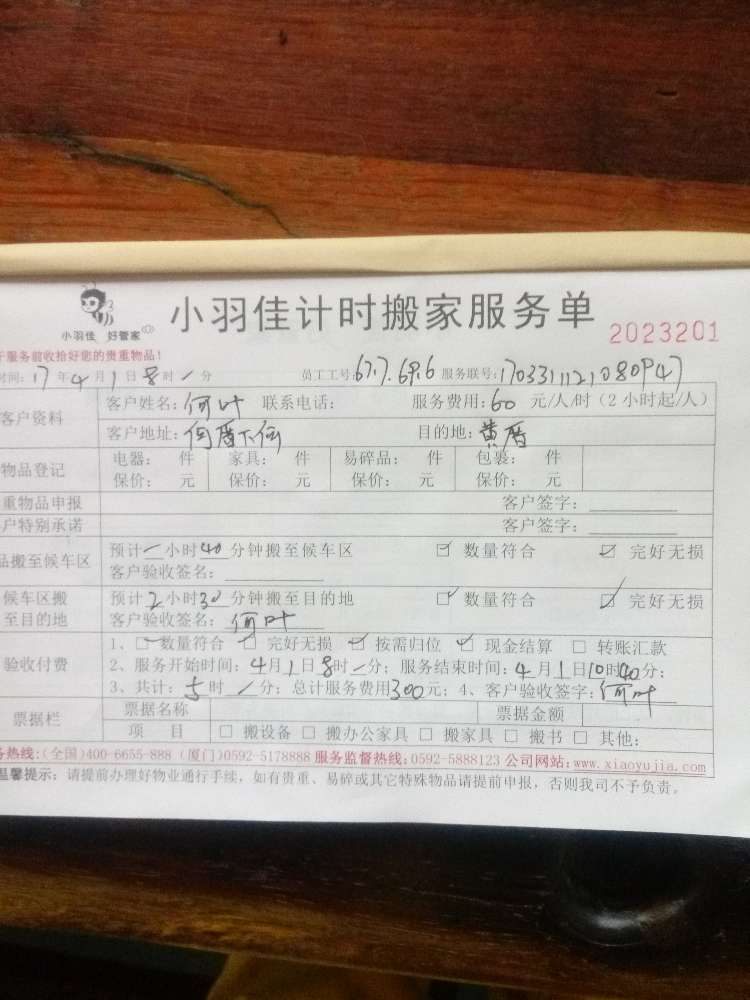 小羽佳 好管家
小羽佳计时搬家服务单
2023201
服务前收拾好您的贵重物品!
时间:17年4月1日8时/分 员工工号: 服务联号:
客户资料 客户姓名:何叶 联系电话: 服务费用:60元/人/时(2小时起/人)
客户地址:何厝下何 目的地:黄厝
物品登记 电器: 件 家具: 件 易碎品: 件 包裹: 件
保价: 元 保价: 元 保价: 元 保价: 元
重物品申报 客户签字:
户特别承诺 客户签字:
品搬至候车区 预计一小时40分钟搬至候车区 ☑ 数量符合 ☑ 完好无损
客户验收签名:
候车区搬 预计2小时30分钟搬至目的地 ☑ 数量符合 ☑ 完好无损
至目的地 客户验收签名:何叶
验收付费 1、☑数量符合 ☑ 完好无损 ☑ 按需归位 ☑ 现金结算 □ 转账汇款
2、服务开始时间:4月1日8时/分;服务结束时间:4月1日10时40分;
3、共计:5时/分;总计服务费用300元;4、客户验收签字:何叶
票据栏 票据名称 票据金额
项 目 □ 搬设备 □ 搬办公家具 □ 搬家具 □ 搬书 □ 其他:
务热线:(全国)400-6655-888 (厦门)0592-5178888 服务监督热线:0592-5888123 公司网站:www.xiaoyujia.com
温馨提示:请提前办理好物业通行手续,如有贵重、易碎或其它特殊物品请提前申报,否则我司不予负责。